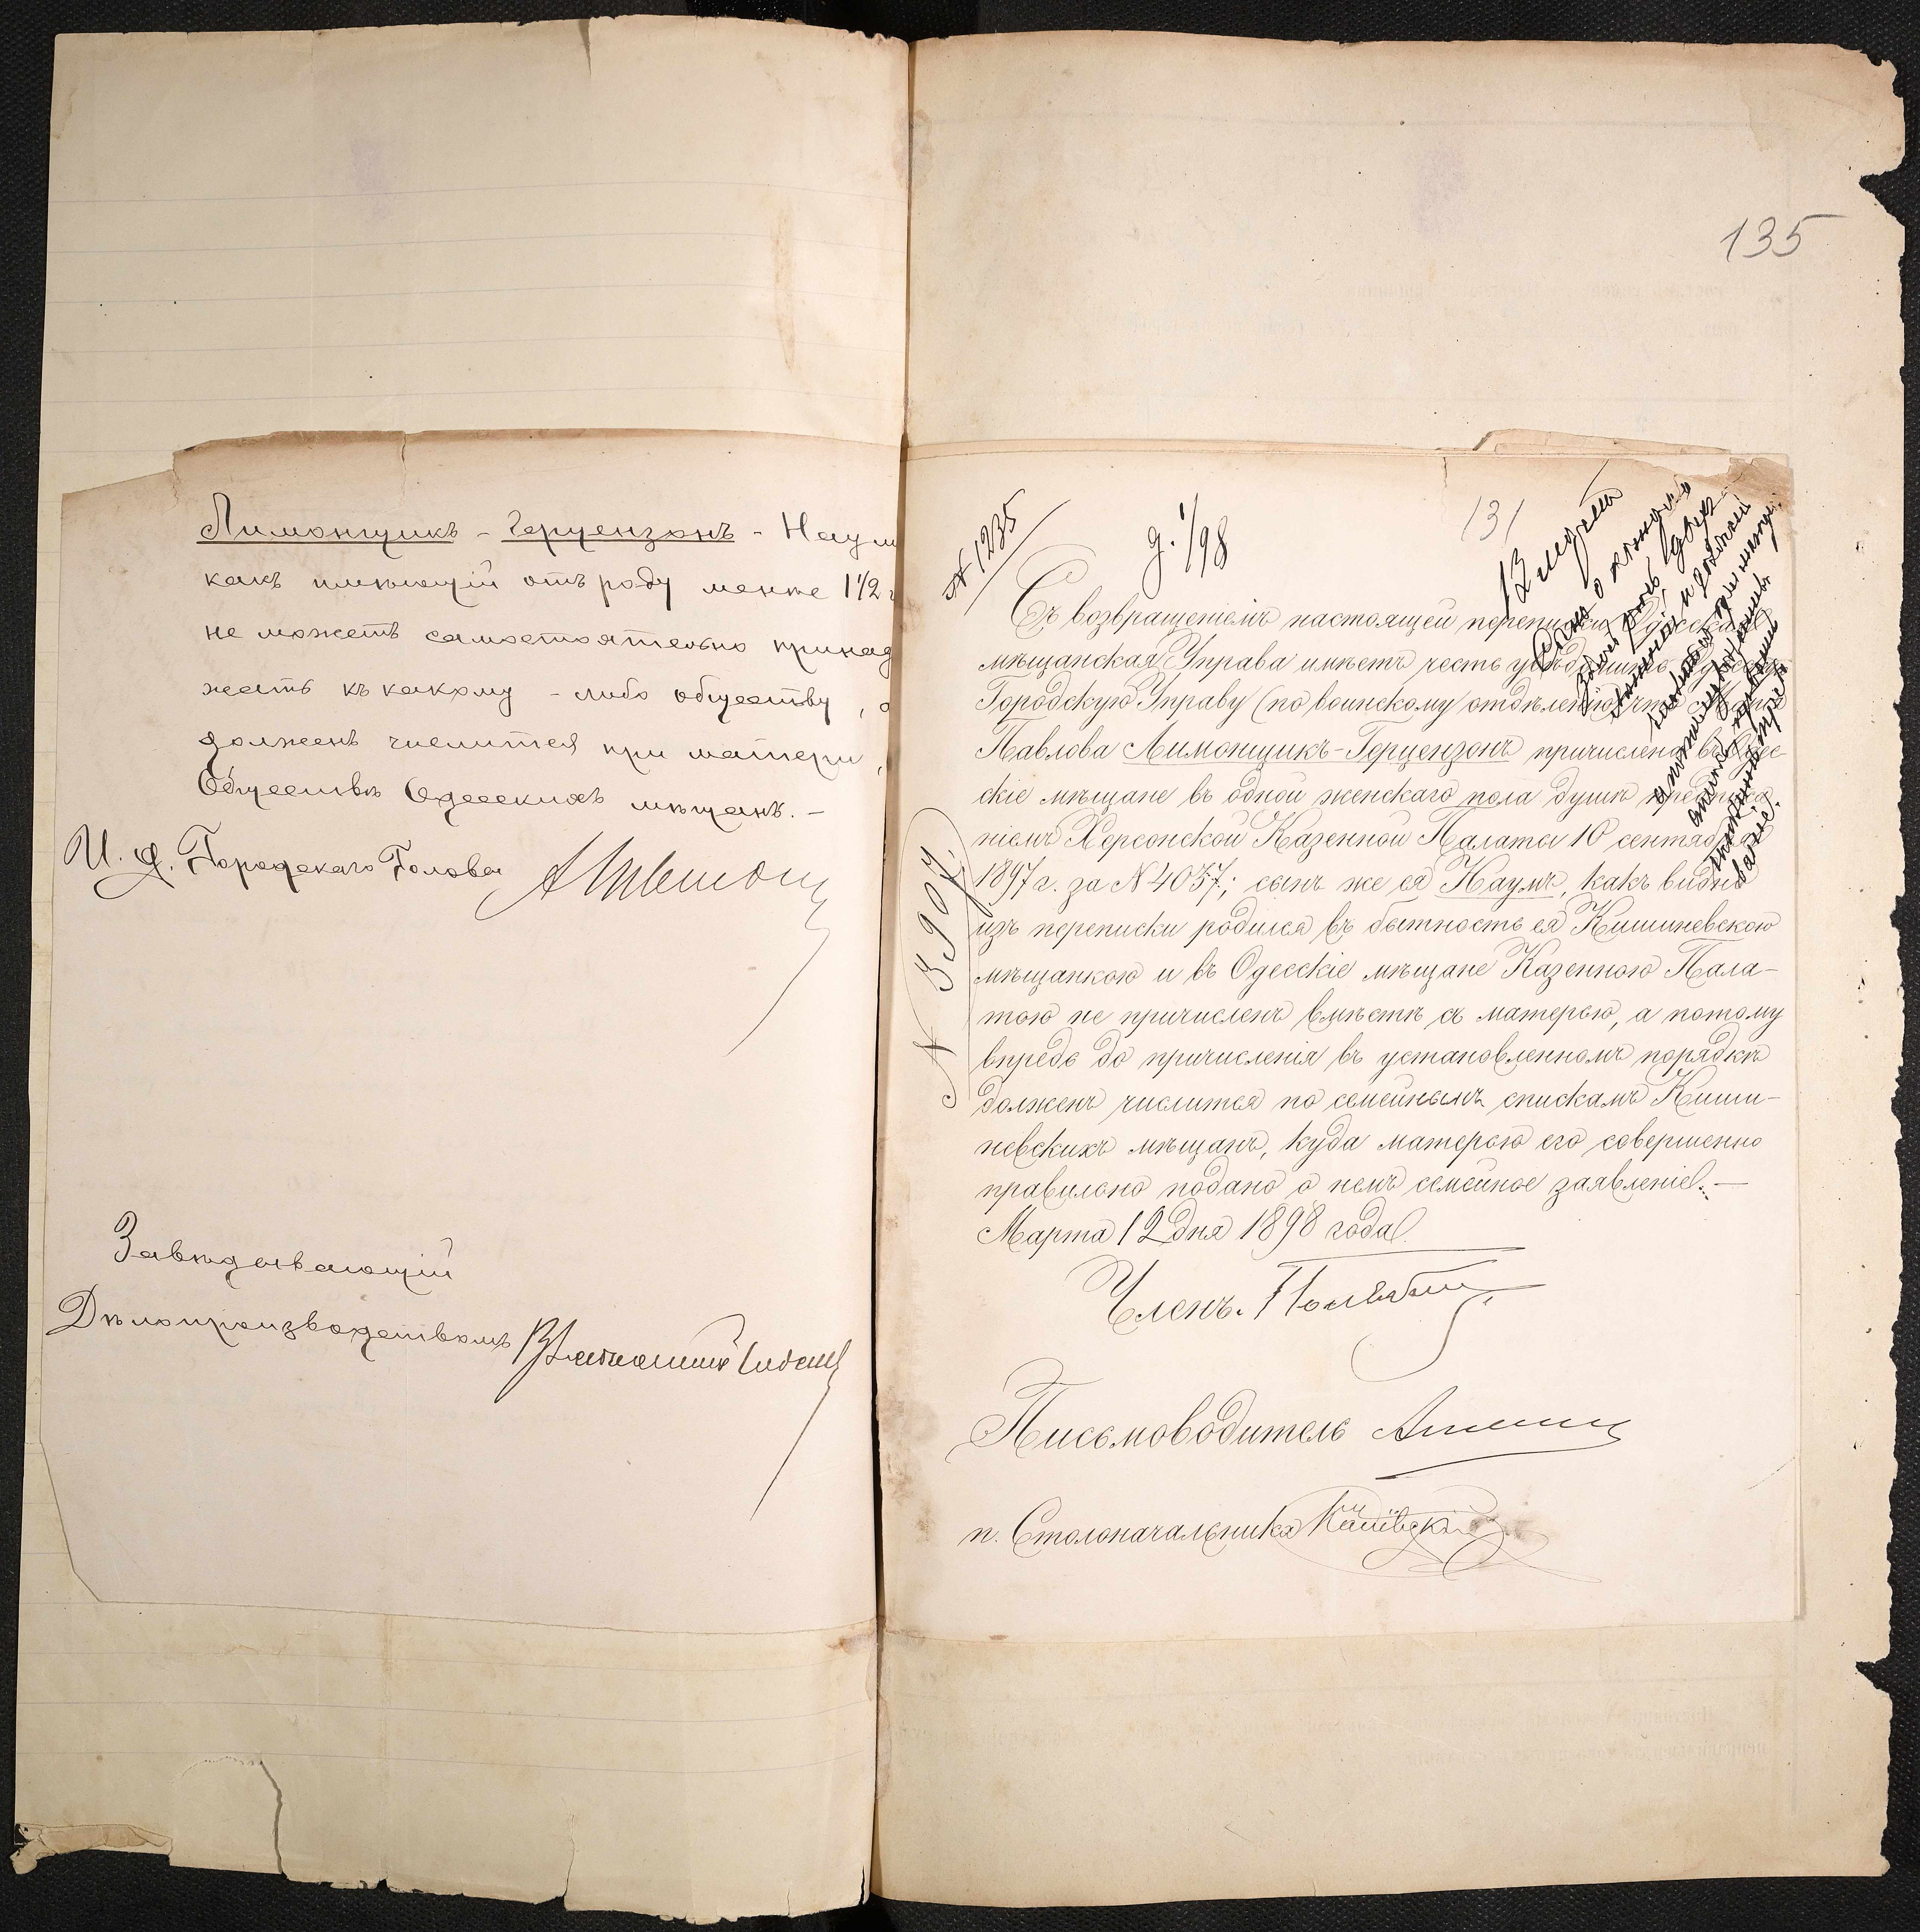 Лимонщикъ - Герцензонъ - Наум
какъ имѣющій отъ роду менѣе 1 1/2 г
не можетъ самостоятельно принад
жать къ какому - либо обществу, а
долженъ числится при матери,
Обществѣ Одесскихъ мѣщанъ. —
И. д. Городского Головы
Завѣдывающій
Дѣлопроизводствомъ
135
131
№ 1235
д. 1/98
№ 3907.
13 марта
Съ возвращеніемъ настоящей переписки Одесская
мѣщанская Управа имѣетъ честь увѣдомить
Городскую Управу (по воинскому отдѣленію) что
Павлова Лимонщикъ-Герцензонъ причислена въ Одес-
скіе мѣщане въ одной женскаго пола душѣ предписа
ніемъ Херсонской Казенной Палаты 10 сентября
1897 г. за № 4057; сынъ же ея Наумъ, какъ видно
изъ переписки родился въ бытность ея Кишиневскою
мѣщанкою и въ Одесскіе мѣщане Казенною Пала-
тою не причисленъ вмѣстѣ съ матерью, а потому
впредь до причисленія въ установленномъ порядкѣ
долженъ числится по семейнымъ спискамъ Киши-
невскихъ мѣщанъ, куда матерью его совершенно
правильно подано о немъ семейное заявленіе. —
Марта 12 дня 1898 года.
Членъ.
Письмоводитель
п. Столоначальника